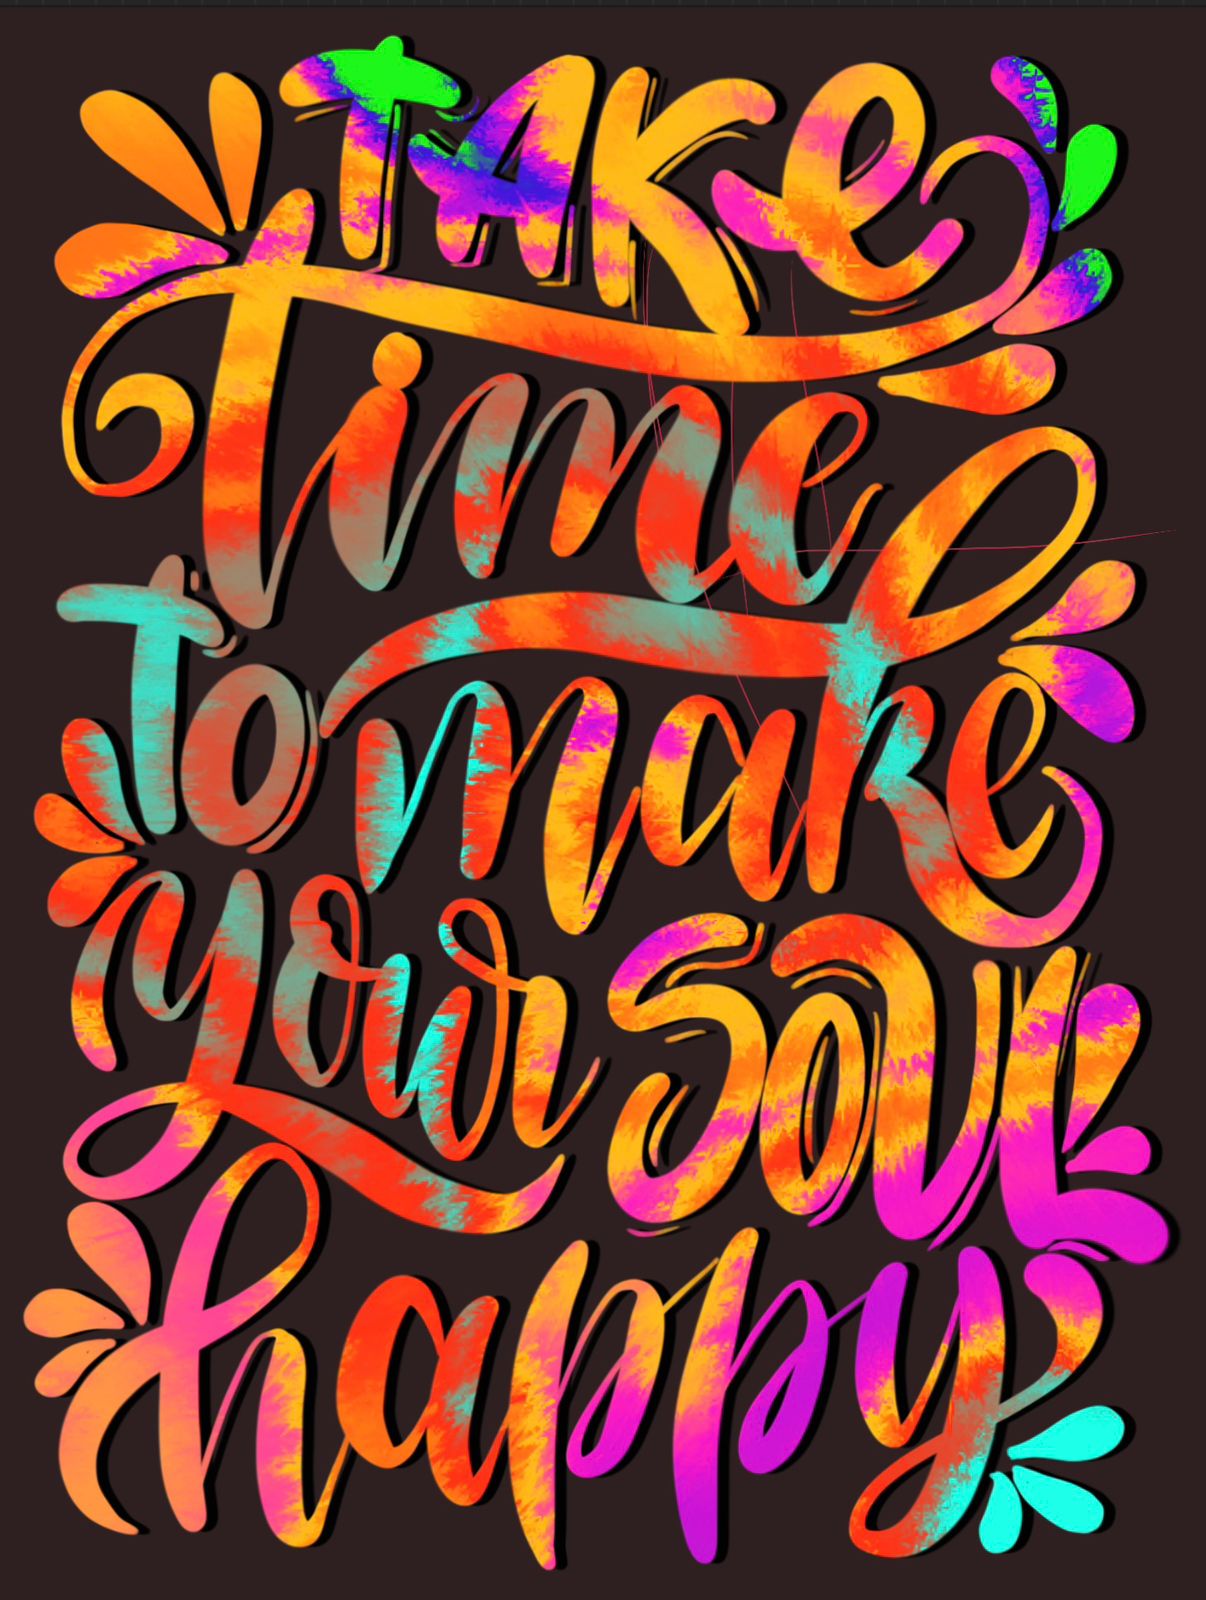 TAKe
Time
To make
your Soul
happy